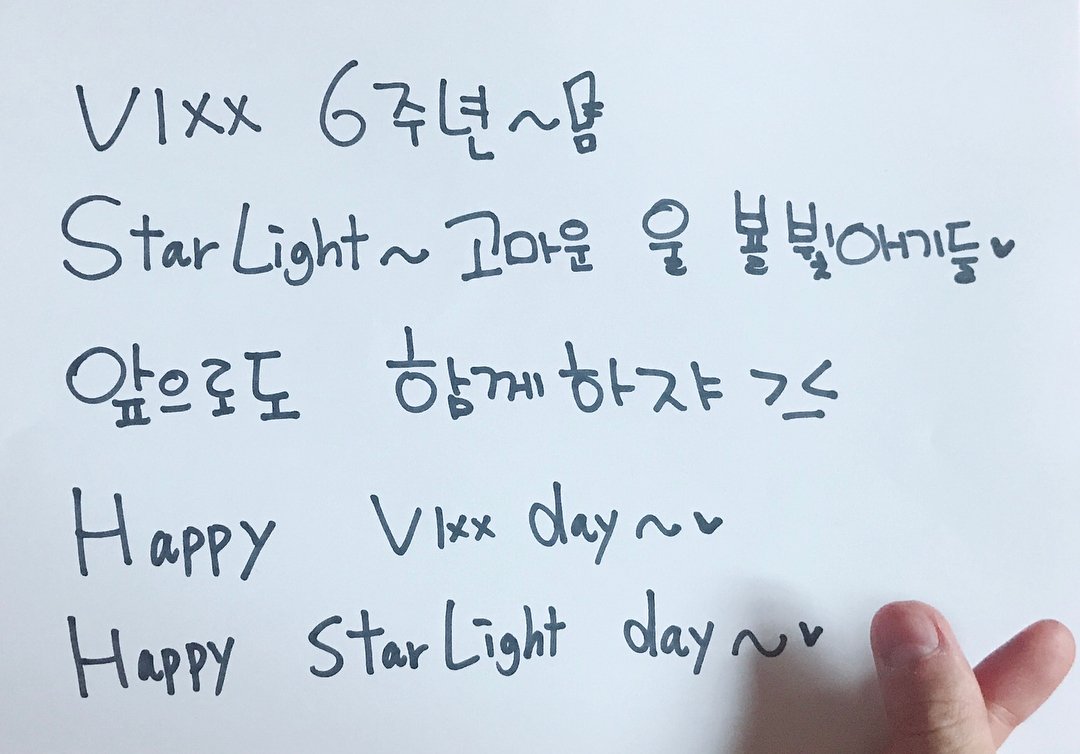 VIXX 6주년~먐
StarLight~ 고마운 울 뵬빛아기들♥
앞으로도 함께하쟈 >_<
Happy VIXX day~♥
Happy StarLight day~♥